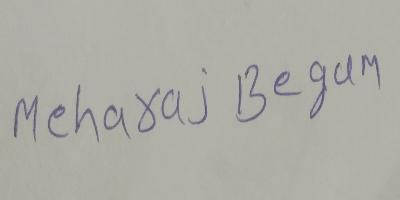 Meharaj Begum